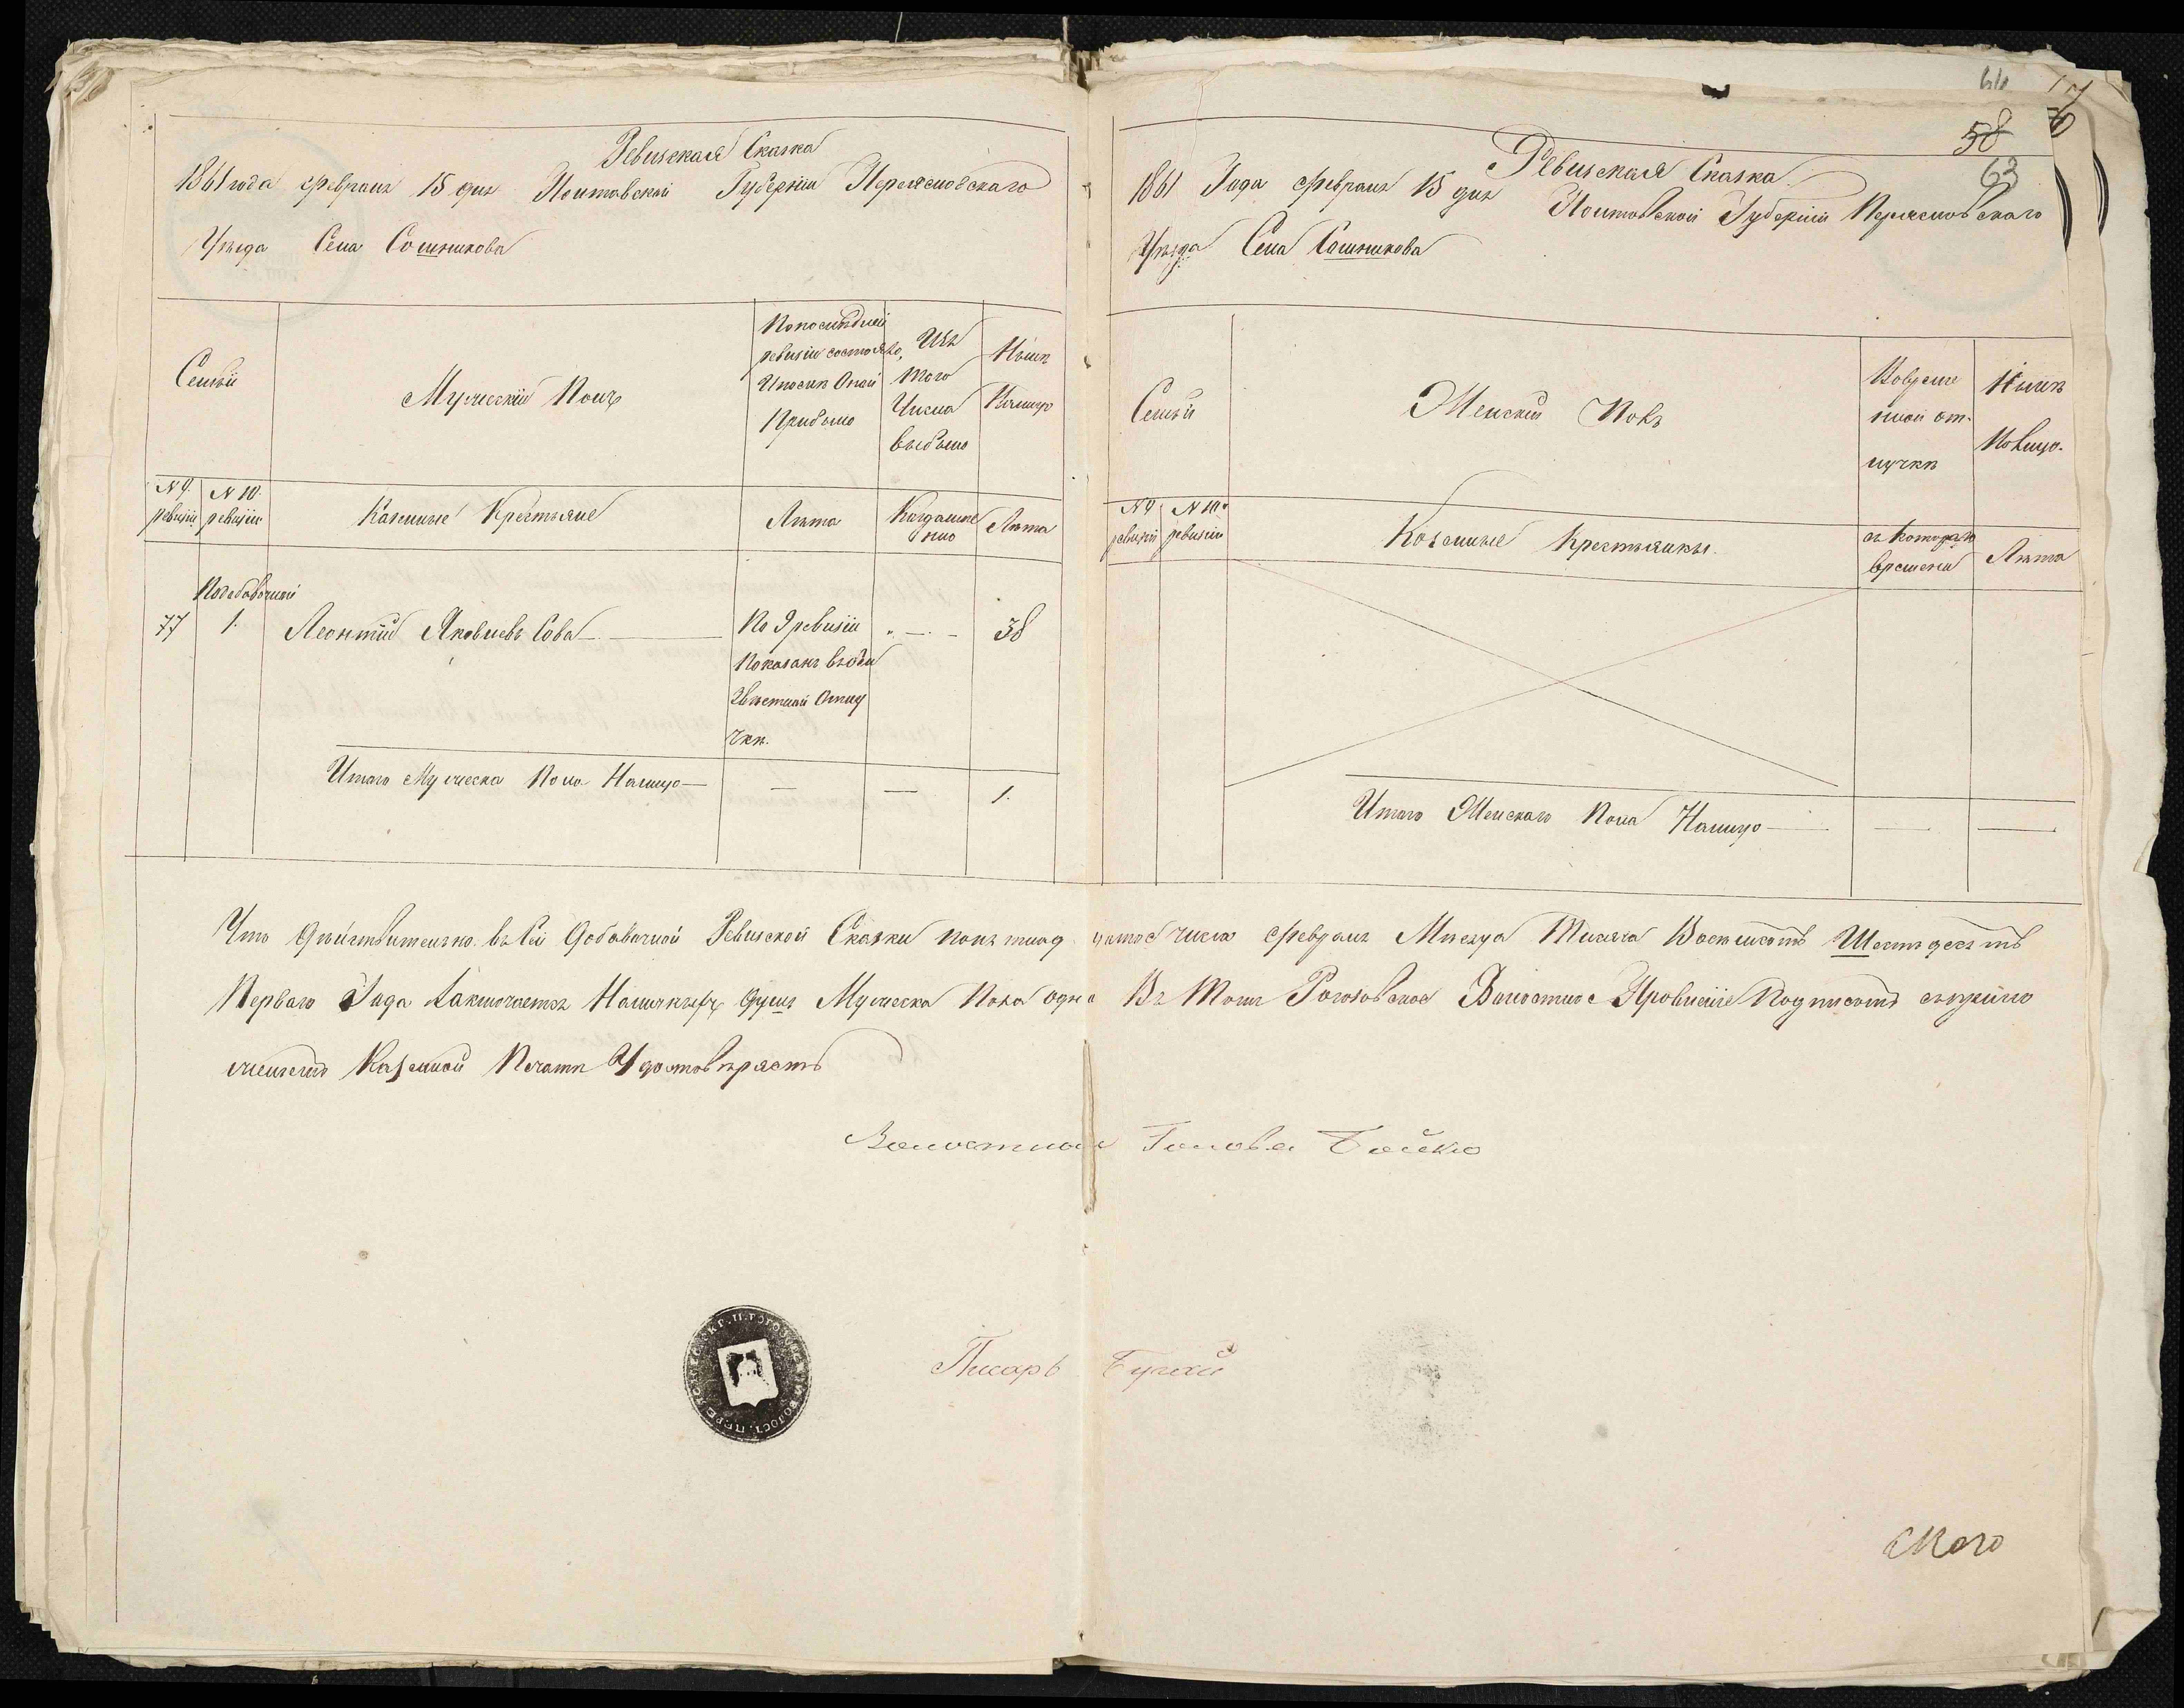 Ревизская Сказка
1861 года февраля 15 дня Полтавской Губернии Переяславскаго
Уѣзда Села Сошникова
Семьи
Мужескій Полъ
Попослѣдней
ревизіи состояло,
Ипослѣ Оной
Прибыло
Изъ
того
Числа
выбыло
Нынѣ
Налицо
№ 9. ревизіи
№ 10. ревизіи
Казенные Крестьяне
Лѣта
Когда имянно
Лѣта
Подобавочной
77 1. Леонтій Яковлевъ Сова — По 9 ревизіи „ — - 38
Показанъ въ
Отлу
чкѣ.
Итого Мужеска Пола Налицо — — — 1.
64
58
63
Ревизская Сказка
1861 Года февраля 15 дня Полтавской Губерніи Переяславскаго
Уѣзда Села Сошникова
Семьи
Женскій Полъ
Вовремен
ной от-
лучкѣ
Нынѣ
Налицо.
№ 9 ревизіи
№ 10. ревизіи
Казенные Крестьянки.
съ Котораго
времени
Лѣта
Итого Женскаго Пола Налицо — — —
Что дѣйствительно въ сей Добавочной Ревизской Сказки попятнадцатое число февраля Мѣсяца Тысяча Восемьсотъ Шестьдесятъ
Перваго Года Заключается Наличныхъ душъ Мужеска Пола одна Въ Томъ Рогозовское Волостное Правленіе Подписомъ съприло
женіемъ Казенной Печати Удостовѣряетъ
Волостной Голова Бойко
Писарь
скаго